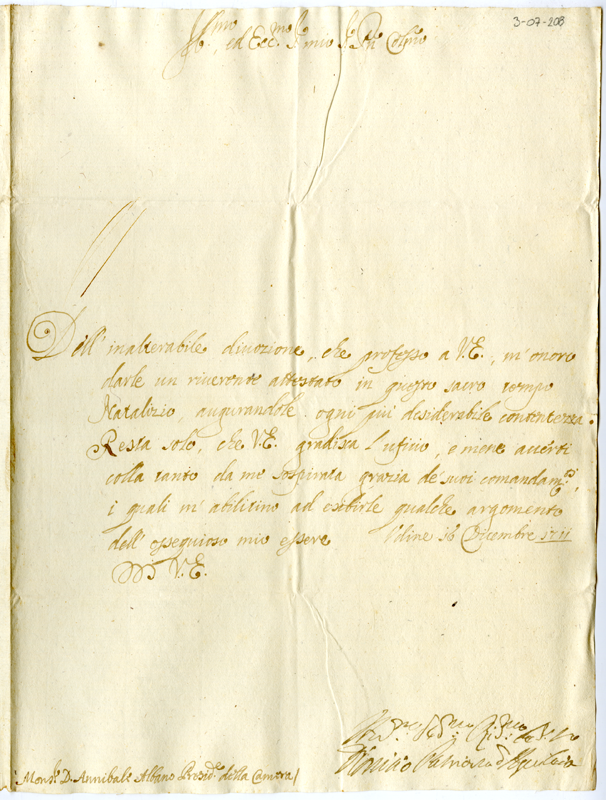 3-07-208
Ill.mo ed Ecc.mo S.r mio S.r P.rn Colmo
Dell' inalterabile divozione, che professo a V.E., m'onoro
darle un riverente attestato in questo sacro tempo
Natalizio, augurandole ogni più desiderabile contentezza.
Resta solo, che V.E. gradisca l'ufizio, e mene accerti
colla tanto da me sospirata grazia de' suoi comandam.ti,
i quali m'abilitino ad esibirle qualche argomento
dell'ossequioso mio essere Udine 16 Dicembre 1711
Di V.E.
Dionisio Patriarca d'Aquileia
Mons.r D. Annibale Albano Presid.e della Camera/